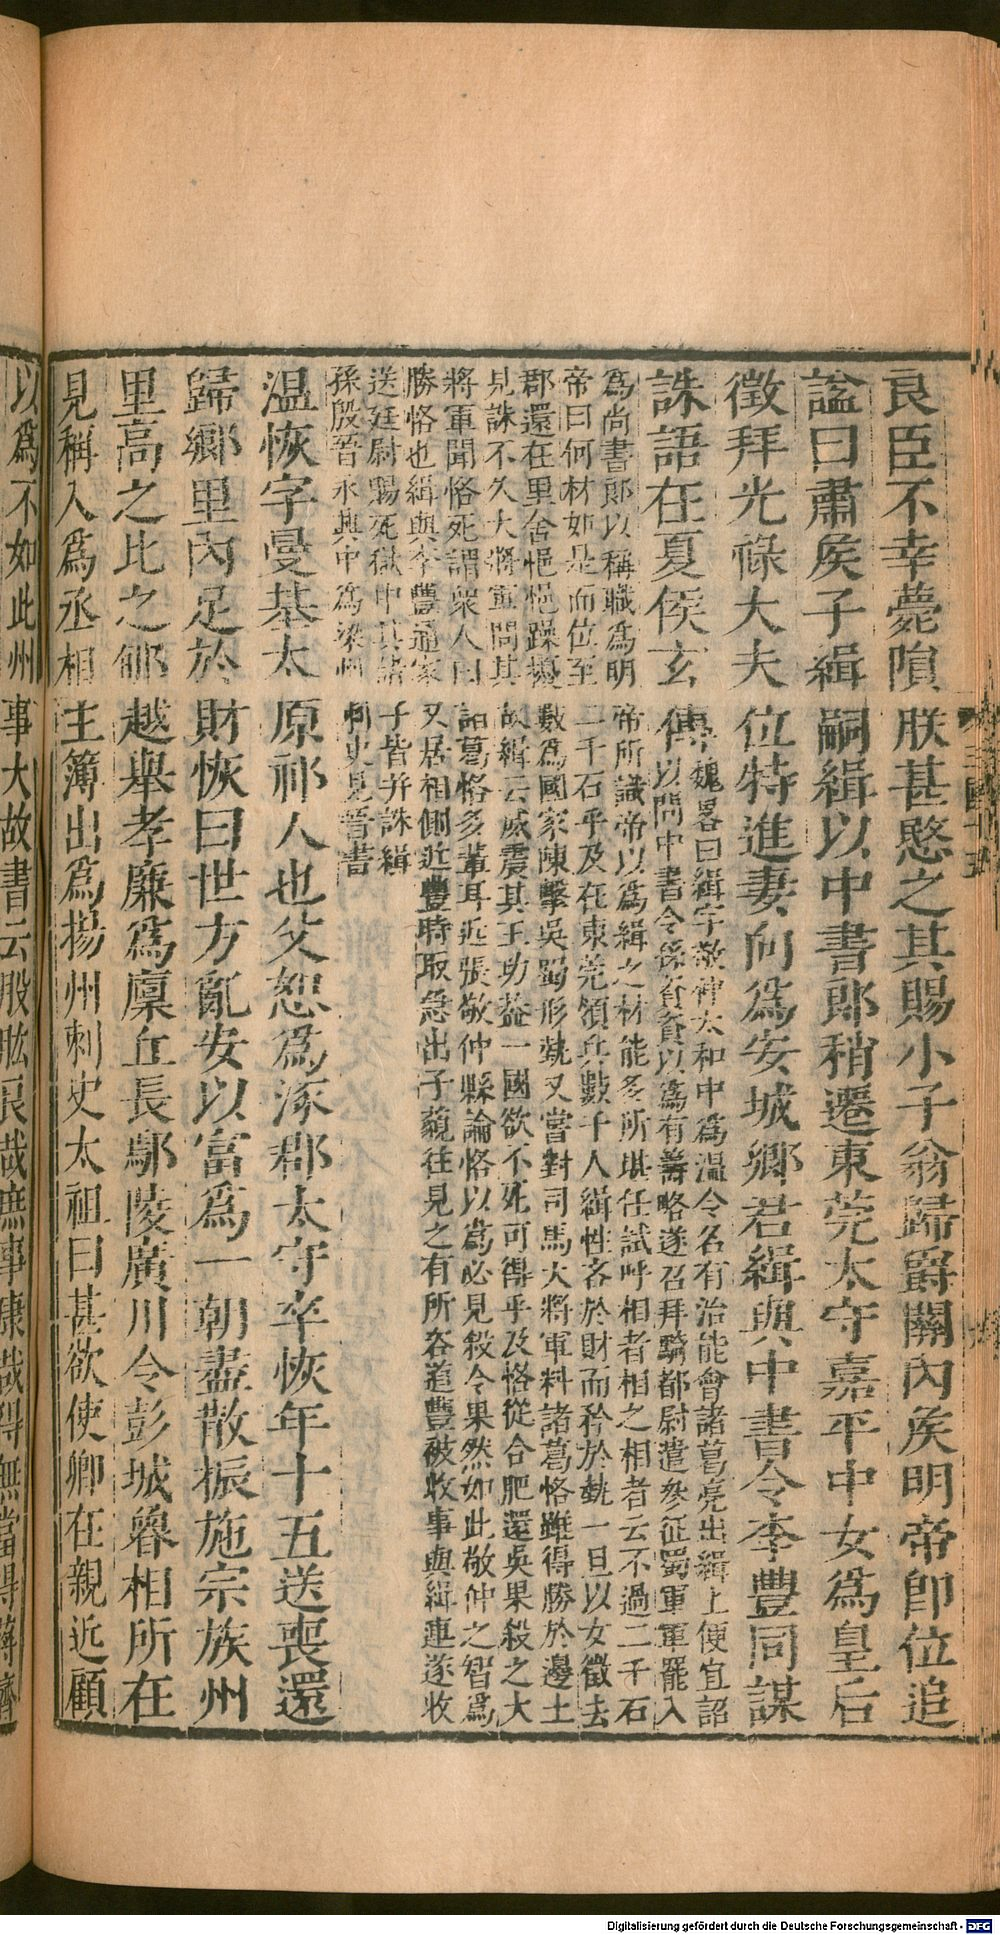 良臣不幸薨隕朕甚愍之其賜小子翁歸爵關內侯明帝卽位追
諡曰肅侯子緝嗣緝以中書郎稍遷東莞太守嘉平中女爲皇后
徵拜光祿大夫位特進妻向爲安城鄉君緝與中書令李豐同謀
誅語在夏侯玄傳
魏畧曰緝字敬仲太和中爲溫令名有治能會諸葛亮出緝上便宜詔
以問中書令孫資資以爲有籌略遂召拜騎都尉遣參征蜀軍軍罷入
爲尚書郎以稱職爲明帝所識帝以爲緝之材能多所堪任試呼相者相之相者云不過二千石
帝曰何材如是而位至二千石乎及在東莞領兵數千人緝性吝於財而矜於埶一旦以女徵去
郡還在里舍悒悒躁擾數爲國家陳擊吳蜀形埶又嘗對司馬大將軍料諸葛恪雖得勝於邊土
見誅不久大將軍問其故緝云威震其主功葢一國欲不死可得乎及恪從合肥還吳果殺之大
將軍聞恪死謂衆人曰諸葛恪多輩耳近張敬仲縣論恪以爲必見殺今果然如此敬仲之智爲
勝恪也緝與李豐通家又居相側近豐時取急出子藐往見之有所咨道豐被收事與緝連遂收
送廷尉賜死獄中其諸子皆并誅緝
孫殷晉永興中爲梁州刺史見晉書
溫恢字曼基太原祁人也父恕爲涿郡太守卒恢年十五送喪還
歸鄉里內足於財恢曰世方亂安以富爲一朝盡散振施宗族州
里高之比之郇越舉孝廉爲廩丘長鄢陵廣川令彭城魯相所在
見稱入爲丞相主簿出爲揚州刺史太祖曰甚欲使卿在親近顧
以爲不如此州事大故書云股肱良哉庶事康哉得無當得蔣濟
Digitalisierung gefördert durch die Deutsche Forschungsgemeinschaft - DFG